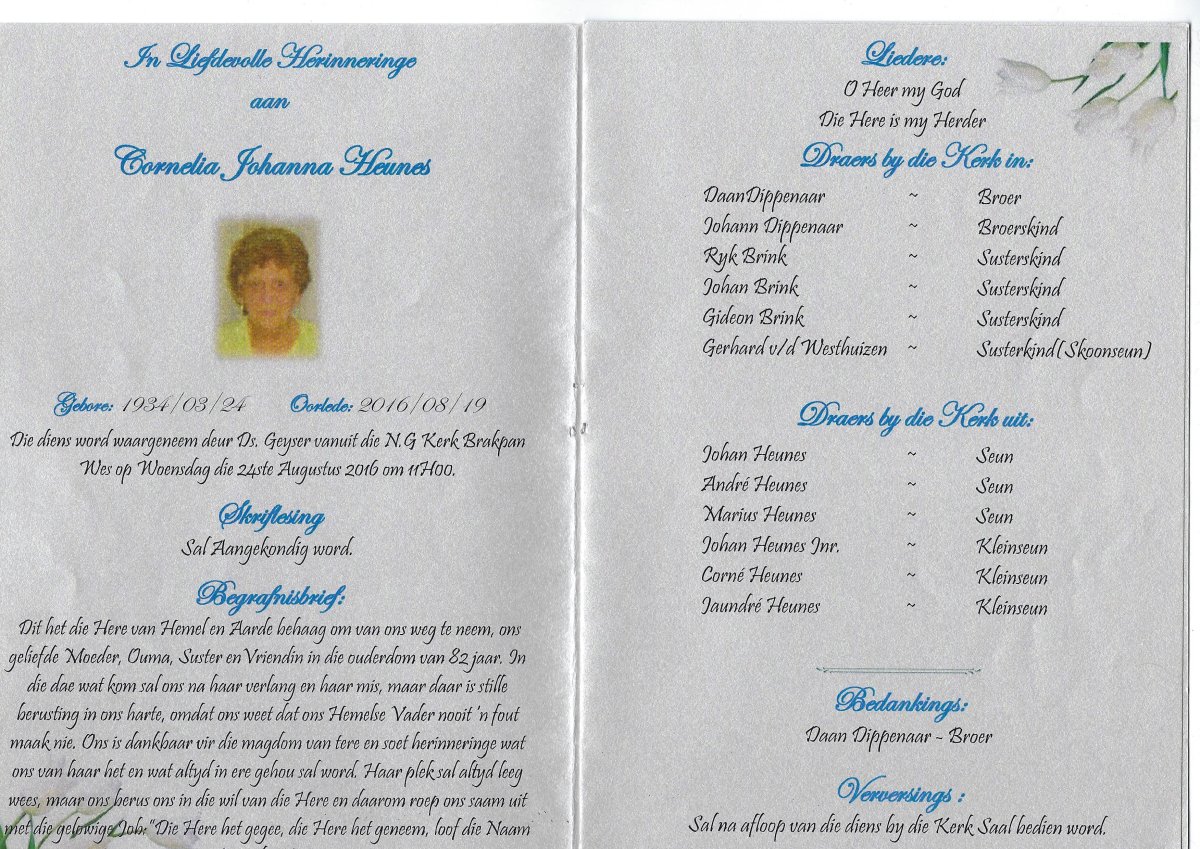 In Liefdevolle Herinneringe
aan
Cornelia Johanna Heunes
Gebore: 1934/03/24 Oorlede: 2016/08/19
Die diens word waargeneem deur Ds. Geyser vanuit die N.G Kerk Brakpan
Wes op Woensdag die 24ste Augustus 2016 om 11H00.
Skriflesing
Sal Aangekondig word.
Begrafnisbrief:
Dit het die Here van Hemel en Aarde behaag om van ons weg te neem, ons
geliefde Moeder, Ouma, Suster en Vriendin in die ouderdom van 82 jaar. In
die dae wat kom sal ons na haar verlang en haar mis, maar daar is stille
berusting in ons harte, omdat ons weet dat ons Hemelse Vader nooit 'n fout
maak nie. Ons is dankbaar vir die magdom van tere en soet herinneringe wat
ons van haar het en wat altyd in ere gehou sal word. Haar plek sal altyd leeg
wees, maar ons berus ons in die wil van die Here en daarom roep ons saam uit
met die gelowige Job: "Die Here het gegee, die Here het geneem, loof die Naam
Liedere:
O Heer my God
Die Here is my Herder
Draers by die Kerk in:
DaanDippenaar ~ Broer
Johann Dippenaar ~ Broerskind
Ryk Brink ~ Susterskind
Johan Brink ~ Susterskind
Gideon Brink ~ Susterskind
Gerhard v/d Westhuizen ~ Susterkind(Skoonseun)
Draers by die Kerk uit:
Johan Heunes ~ Seun
André Heunes ~ Seun
Marius Heunes ~ Seun
Johan Heunes Jnr. ~ Kleinseun
Corné Heunes ~ Kleinseun
Jaundré Heunes ~ Kleinseun
Bedankings:
Daan Dippenaar - Broer
Verversings :
Sal na afloop van die diens by die Kerk Saal bedien word.